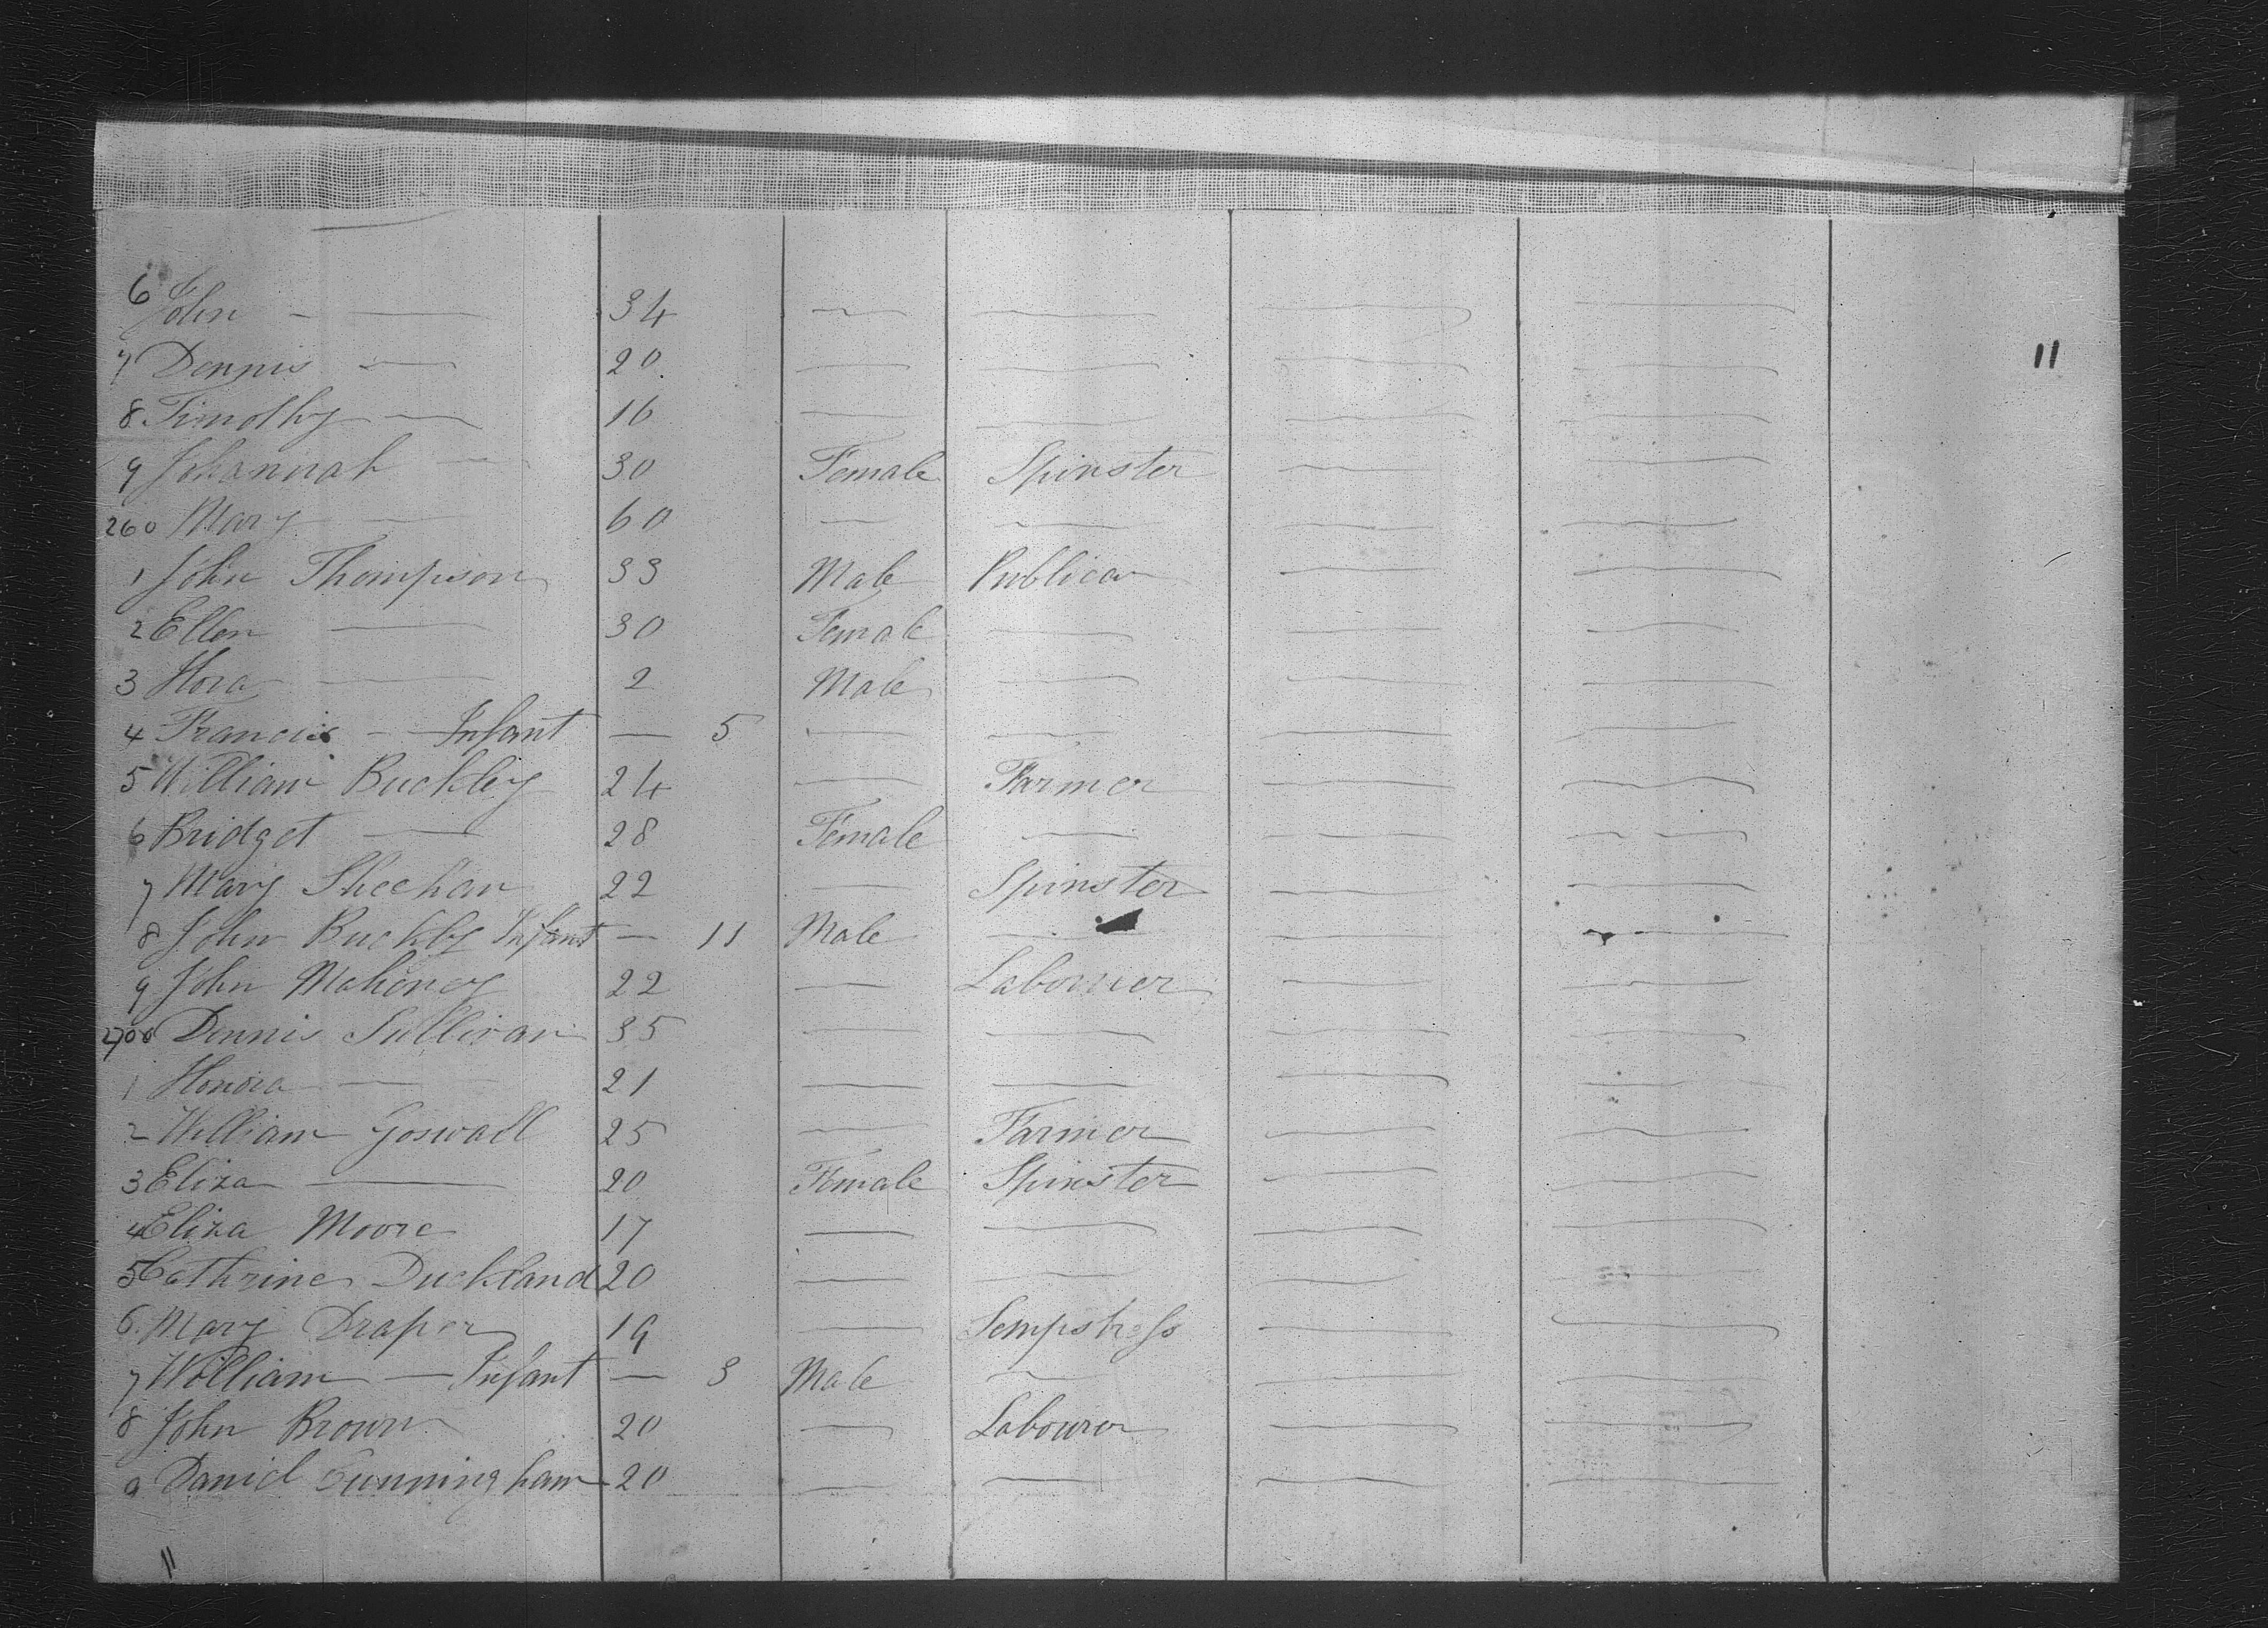 6 John - — 34 — — — —
11
7 Dennis — 20 — — — —
8 Timothy — 16 — — — —
9 Johannah — 30 Female Spinster — —
260 Mary — 60 — — — —
1 John Thompson 33 Male Publican — —
2 Ellen — 30 Female — — —
3 Hora — 2 Male — — —
4 Francis - — Infant — 5 — — — —
5 William Buckley 24 — Farmer — —
6 Bridget — 28 Female — — —
7 Mary Sheehan 22 — Spinster — —
8 John Buckley Infant — 11 Male — — —
9 John Mahoney 22 — Labourer — —
270 Dennis Sullivan 35 — — — —
1 Honora — 21 — — — —
2 William Goswall 25 — Farmer — —
3 Eliza — 20 Female Spinster — —
4 Eliza Moore 17 — — — —
5 Cathrine Duckland 20 — — — —
6 Mary Draper 19 — Sempstress — —
7 William — Infant — 3 Male — — —
8 John Brown 20 — Labourer — —
9 Daniel Cunningham 20 — — — —
11